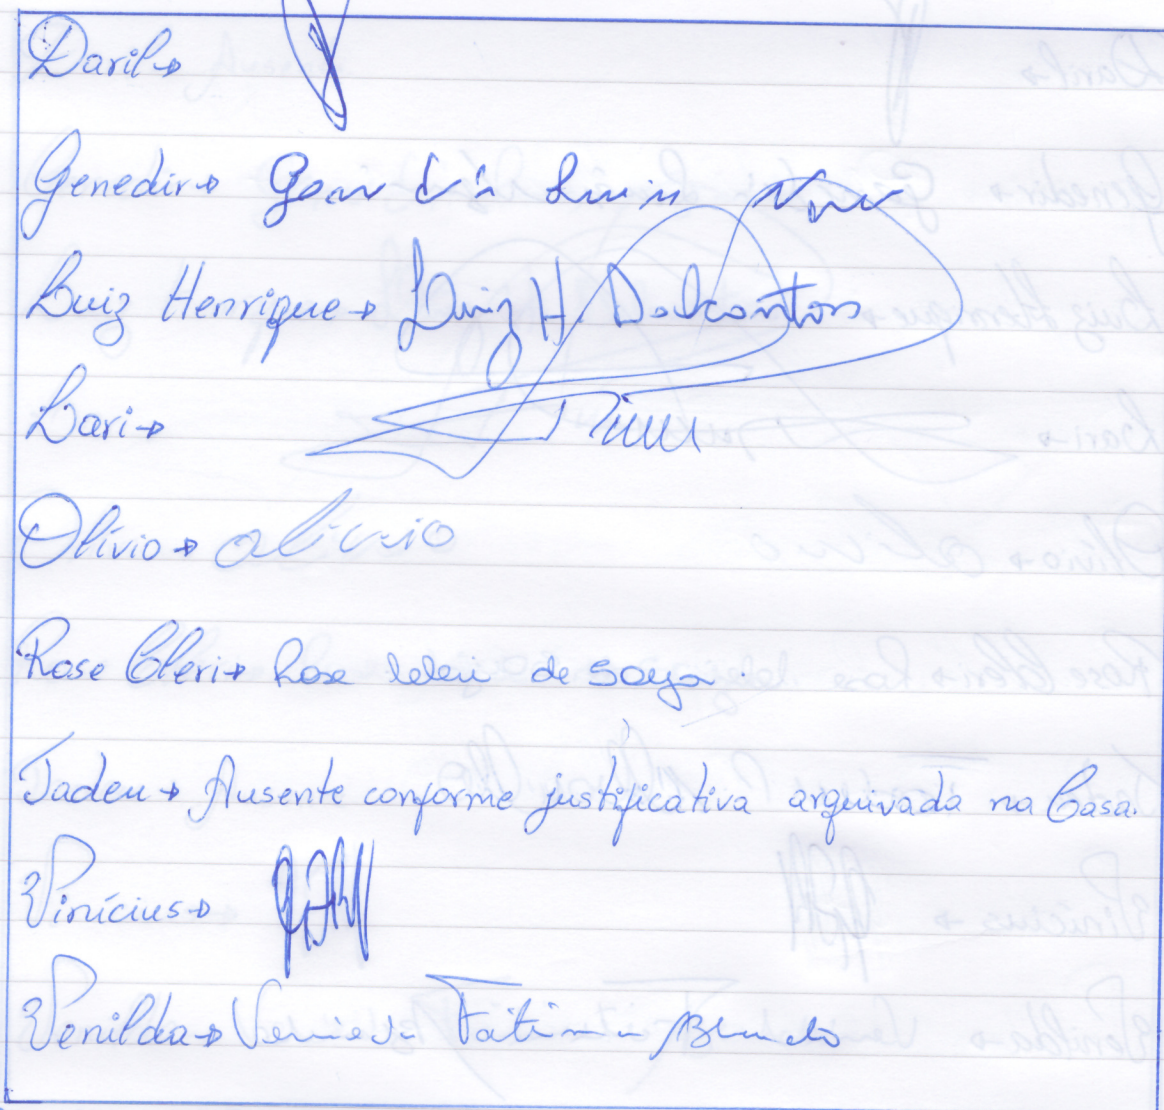 Daril→
Genedir→
Luiz Henrique→ Luiz H. Dalcanton
Lari→
Olívio→ Olivio
Rose Cleri→ Rose Cleri de Souza.
Tadeu→ Ausente conforme justificativa arquivada na Casa.
Vinícius→
Venilda→ Fátima